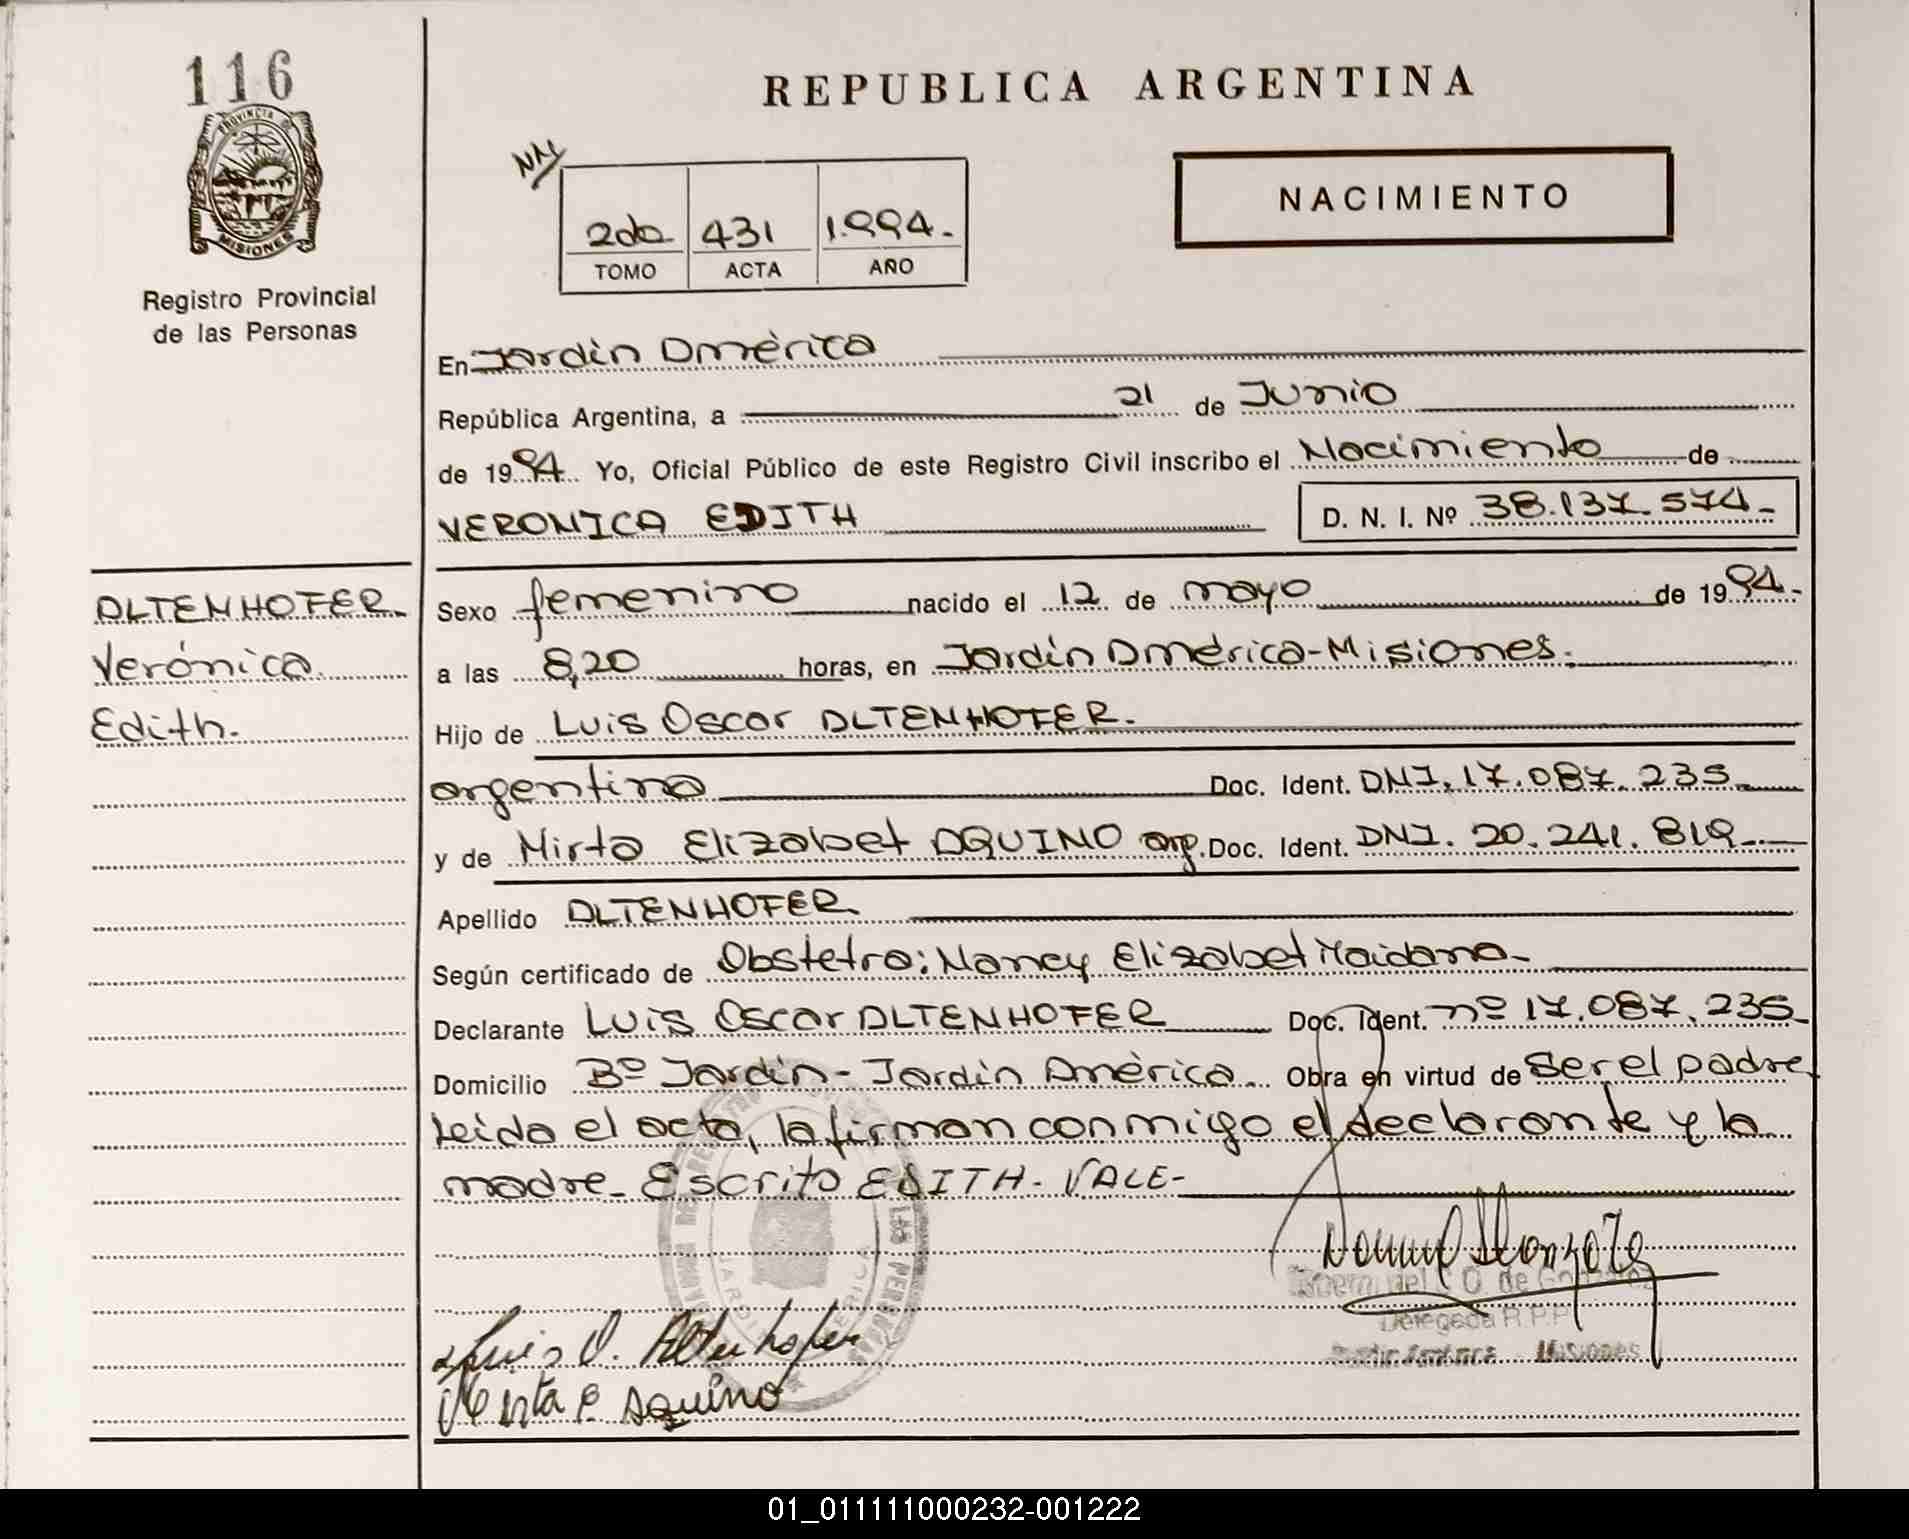 116
PROVINCIA DE
MISIONES
Registro Provincial
de las Personas
REPUBLICA ARGENTINA
NACIMIENTO
2do 431 1.994.
TOMO ACTA AÑO
En Jardín América
República Argentina, a 21 de Junio
de 1994. Yo, Oficial Público de este Registro Civil inscribo el Nacimiento de
VERONICA EDITH D. N. I. Nº 38.137.574.-
ALTENHOFER
Verónica
Edith.
Sexo femenino nacido el 12 de mayo de 1994.-
a las 8,20 horas, en Jardín América-Misiones.
Hijo de Luis Oscar ALTENHOFER.
argentino Doc. Ident. DNI. 17.087.235.-
y de Mirta Elizabet AQUINO arg. Doc. Ident. DNI. 20.241.819.-
Apellido ALTENHOFER
Según certificado de Obstetra: Nancy Elizabet Maidana-
Declarante Luis Oscar ALTENHOFER Doc. Ident. nº 17.087.235-
Domicilio Bº Jardín-Jardín América. Obra en virtud de ser el padre
Leída el acta, la firman conmigo el declarante y la
madre- Escrito EDITH- VALE-
Delegada R.P.P.
Misiones
Luis O. Altenhofer
Mirta E Aquino
01_011111000232-001222